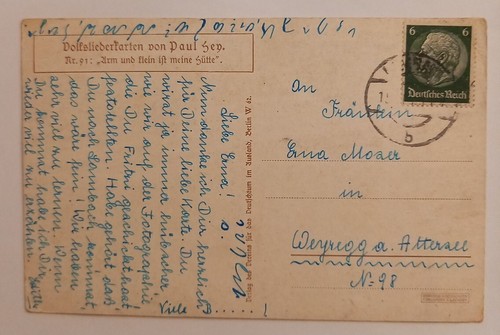 Volksliederkarten von Paul Hey.
Nr. 91: „Arm und klein ist meine Hütte".
Liebe Erna!
Nun danke ich Dir herzlich
für Deine liebe Karte. Du
wirst ja immer hübscher
wie wir auf der Fotographie
die Du Fritzi geschickt hast
feststellten. Habe gehört das
Du nach Lambach kommst,
das wäre fein! Wir haben
sehr viel zu lernen. Wenn
Du kommst habe ich Dir
wieder viel zu erzählen.
Viele
6
6
Deutsches Reich
b
An
Fräulein
Erna Moser
in
Weyregg a. Attersee
No 98
Verlag des Vereins für das Deutschtum im Ausland, Berlin W